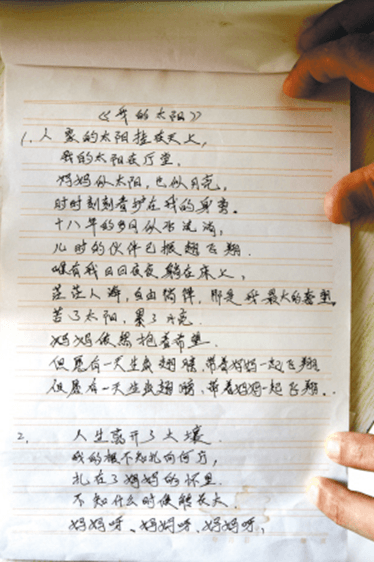 《我的太阳》
1、人家的太阳挂在天上,
我的太阳在厅里,
妈妈似太阳,也似月亮,
时时刻刻看护在我的身旁。
十八年的岁月似水流淌,
儿时的伙伴已振翅飞翔.
唯有我日日夜夜躺在床上,
茫茫人海,自由徜徉,那是我最大的奢望
苦了太阳,累了月亮.
妈妈依然抱着希望.
但愿有一天生出翅膀,带着妈妈一起飞翔
但愿有一天生出翅膀,带着妈妈一起飞翔..
2、人生离开了土壤.
我的根不知扎向何方,
扎在了妈妈的怀里.
不知什么时候能长大.
妈妈呀、妈妈呀、妈妈呀,